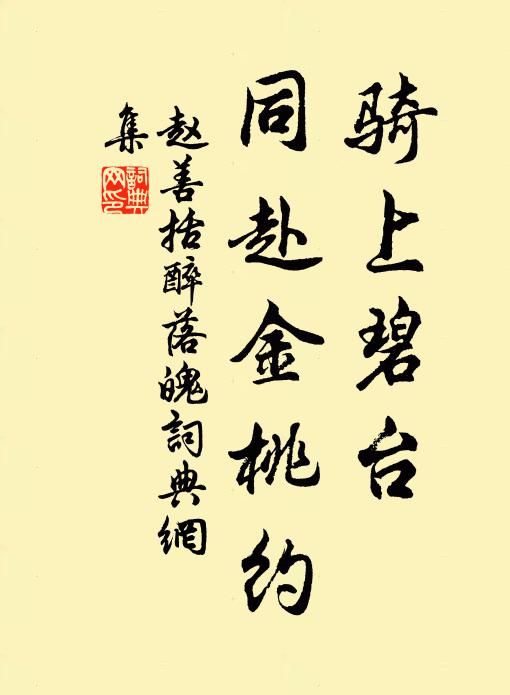 骑上碧台
同赴金桃约
赵善括醉落魄词典網
集
詞典
网印